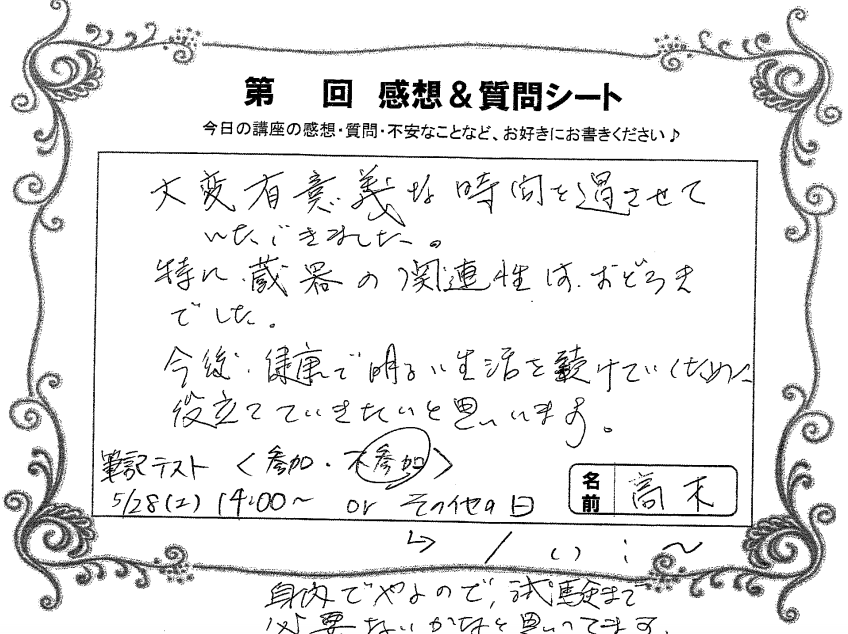 第　回 感想＆質問シート
今日の講座の感想・質問・不安なことなど、お好きにお書きください♪
大変有意義な時間を過させて
いただきました。
特に、蔵器の関連性は、おどろき
でした。
今後、健康で明るい生活を続けていくために
役立てていきたいと思います。
筆記テスト 〈参加・不参加〉
5/28(土) 14:00〜 or その他の日
名前 高木
↳ / ( ) : 〜
身内でやるので、試験まで
必要ないかなと思ってます。